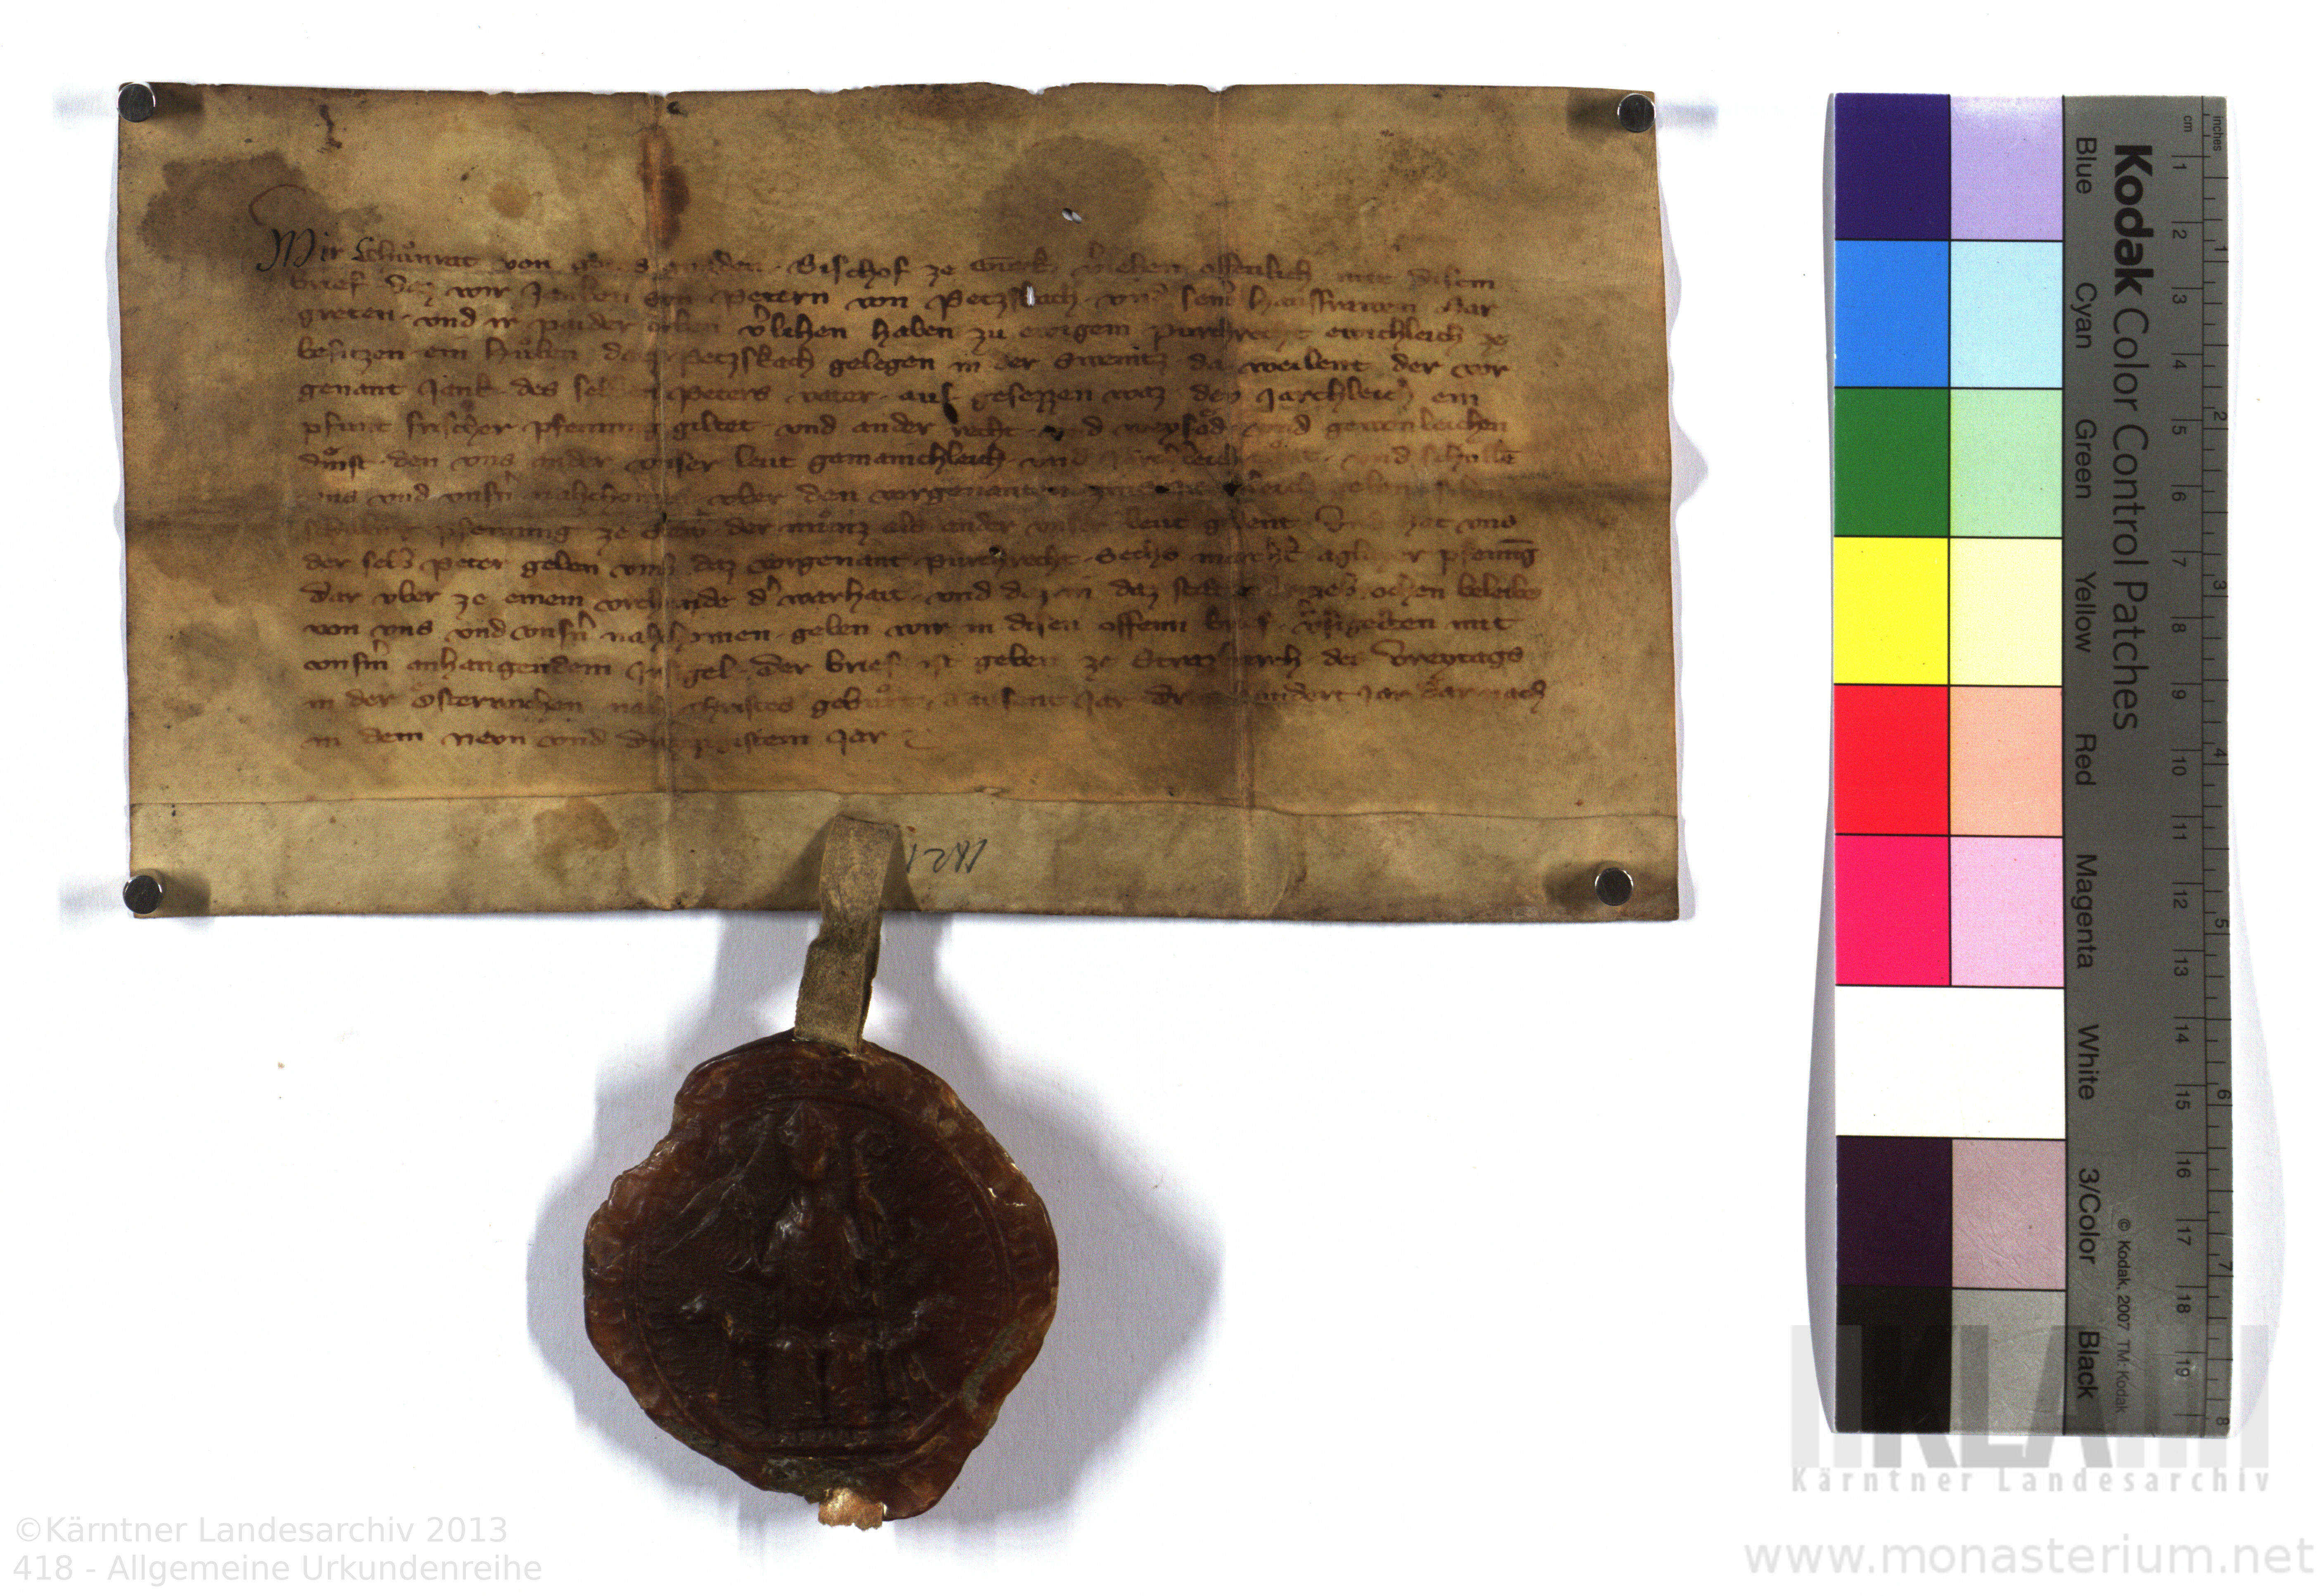 Wir Chuͦnrat von gotes gnaden Bischof ze Gurk v̓iehen offenlich mit disem
brief daz wir Petern von Petzskach vnd sein̓ hausfrawen Mar
greten vnd ir paider erben v̓lihen haben zu ewigem purchrecht ewichleich ze
besitzen ein huͦben datz Petzskach gelegen in der Swenitz da weilent der vor
genant Jank des selben Peters vater auf gesezzen waz dev jaerchleich ein
pfunt frisch̓er pfenning giltet vnd ander recht vnd weysöd vnd gewonleichen
dinst den vns ander vnser leut gemainchleich vnd
vns vnd vnsn̓ nahchomen vber den vorgenanten zins
pfenning ze der munz als ander vnser leut gebent Vnd hat vns
der selb Peter geben vmb daz vorgenant purchrecht Sechs march aglayer pfenīng
Dar vber ze einem vrchunde d̓ warhait vnd daz in daz staet beleibe
von vns vnd vnsn̓ nahchomen geben wir in disen offenn brief v̓sigelten mit
vnsm̓ anhangendem Insigel Der brief ist geben ze Strazburch des Vreytags
in der Osterwochen nach Christes geburt Tausent Jar Dreuhundert Jar darnach
in dem Neon vnd dreizzigistem Jar
Kodak Color Control Patches
Blue Cyan Green Yellow Red Magenta White 3/Color Black
© Kodak, 2007 TM: Kodak
cm 1 2 3 4 5 6 7 8 9 10 11 12 13 14 15 16 17 18 19
inches 1 2 3 4 5 6 7 8
KLA
Kärntner Landesarchiv
©Kärntner Landesarchiv 2013
418 - Allgemeine Urkundenreihe
www.monasterium.net